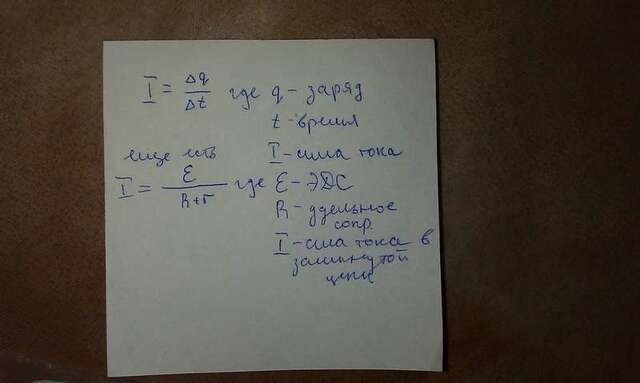 I = Δq/Δt где q - заряд
t - время
I - сила тока
еще есть
I = ε/(R+r) где ε - ЭДС
R - удельное
сопр.
I - сила тока в
замкнутой
цепи